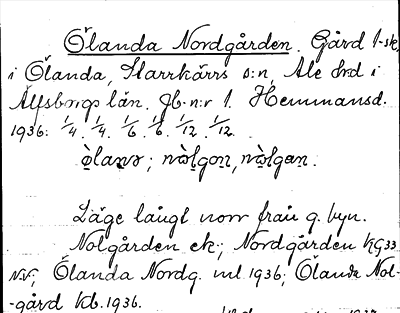 Ölanda Nordgården. Gård 1-sk,
i Ölanda, Starrkärrs s:n, Ale hrd i
Älfsborgs län. Jb.n:r 1. Hemmansd.
1936: 1/4. 1/4. 1/6. 1/6. 1/12. 1/12.
nòlgon, nòlgan.
Läge långt norr från g. byn.
Nolgården ek; Nordgården KG33
Ölanda Nordg. ml 1936; Ölanda Nol-
-gård Kb. 1936.